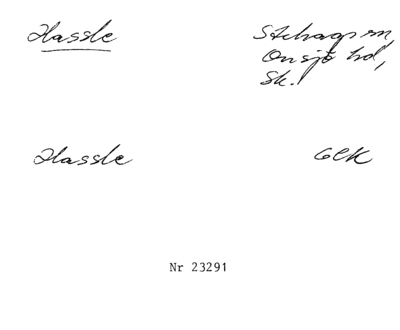 Hassle
Stehags sn,
Onsjö hd,
Sk.
Hassle
GEK
Nr 23291